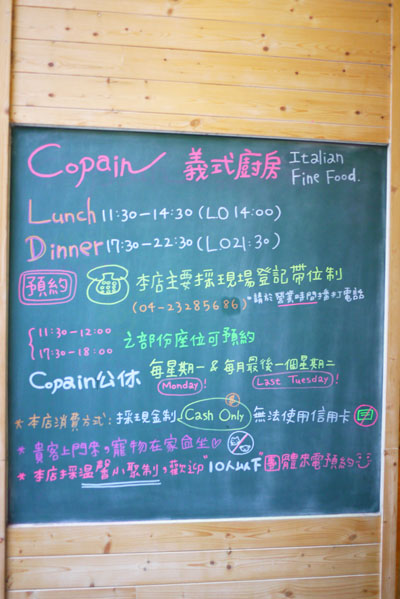 Copain 義式廚房 Italian Fine Food.
Lunch 11:30-14:30 (LO 14:00)
Dinner 17:30-22:30 (LO 21:30)
預約 本店主要採現場登記帶位制
(04-23285686) *請於營業時間撥打電話
11:30-12:00
17:30-18:00 之部份座位可預約
Copain公休 每星期一 & 每月最後一個星期二
Monday! Last Tuesday!
*本店消費方式:採現金制 Cash Only 無法使用信用卡
*貴客上門來,寵物在家庭坐♡
*本店採溫馨小聚制,歡迎"10人以下"團體來電預約